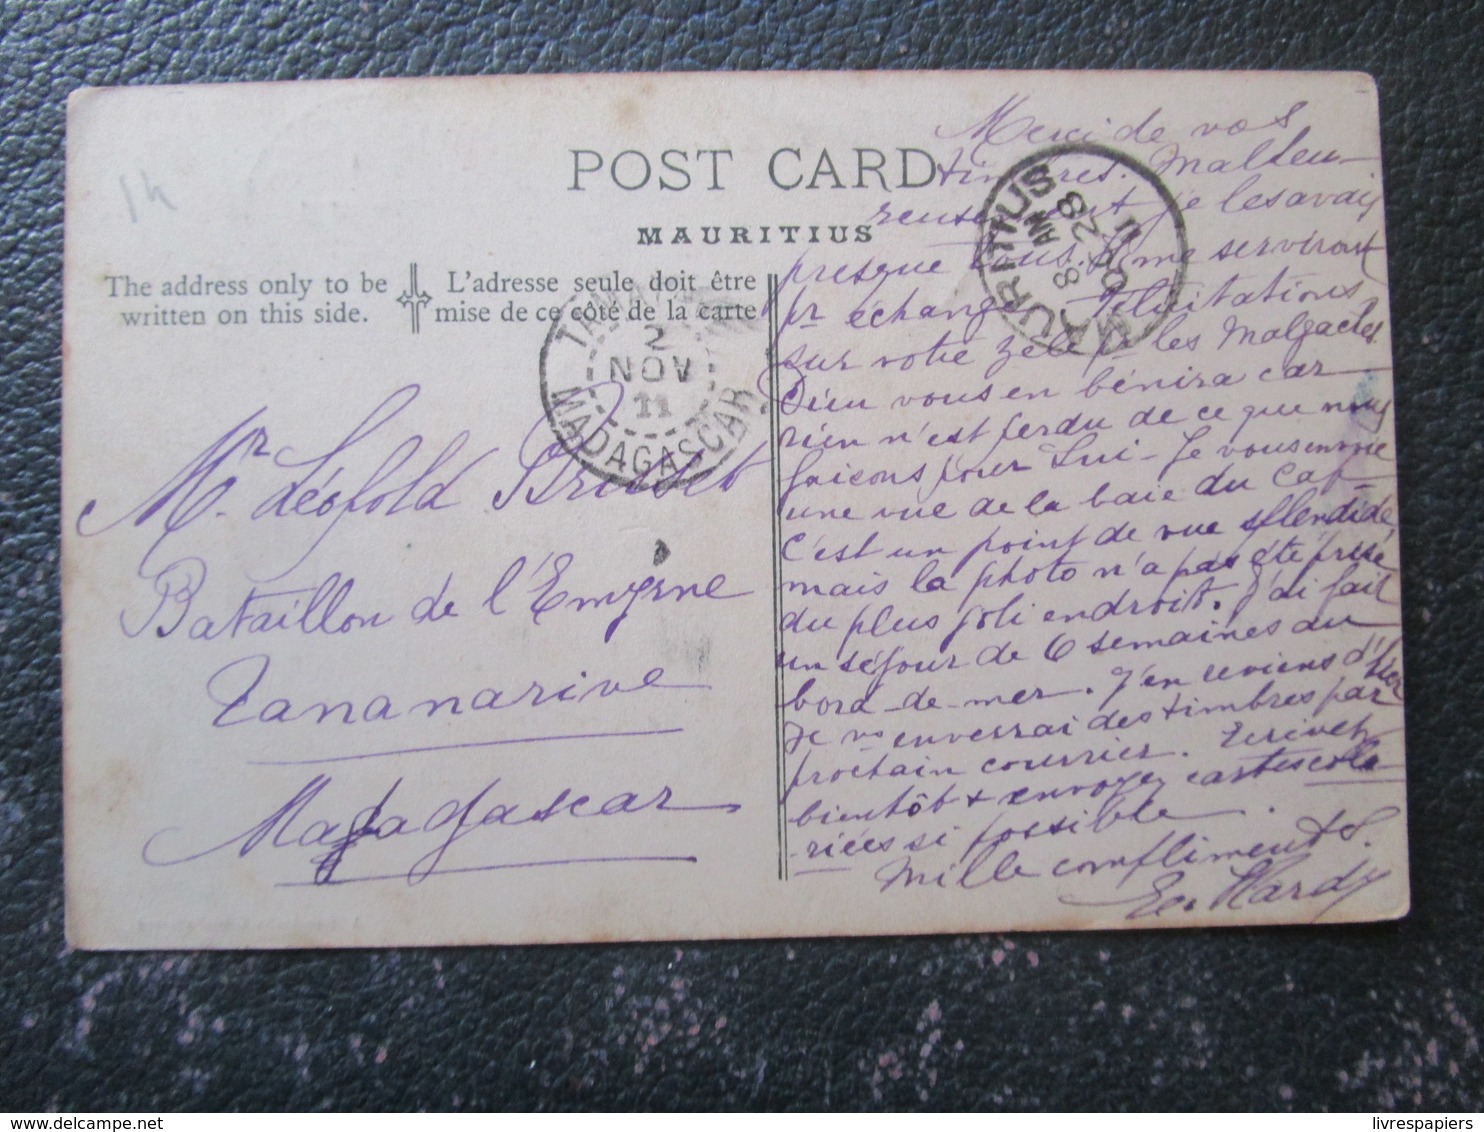 14
POST CARD
MAURITIUS
The address only to be
written on this side.
L'adresse seule doit être
mise de ce côté de la carte
2
NOV
11
MADAGASCAR
MAURITIUS
8 AM
OC 28
11
Mr. Léopold Brisset
Bataillon de l'Emyrne
Tananarive
Madagascar
Merci de vos
timbres. Malheu-
reusement je les avais
presque tous. Ils me serviront
pr échange. Félicitations
sur votre zèle pr les Malgaches
Dieu vous en bénira car
rien n'est perdu de ce que nous
faisons pour Lui - Je vous envoie
une vue de la baie du Cap -
C'est un point de vue splendide,
mais la photo n'a pas été prise
du plus joli endroit. J'ai fait
un séjour de 6 semaines au
bord-de-mer. J'en reviens d'hier
Je vs enverrai des timbres par
prochain courrier. Ecrivez
bientôt & envoyez cartes colo
-riées si possible
Mille compliments.
Ed. Hardy
livrespapiers